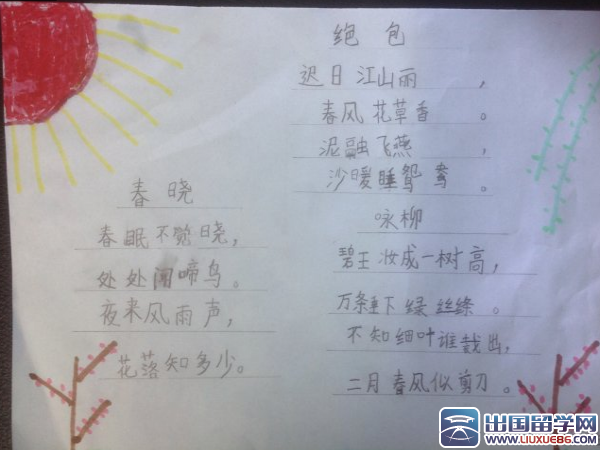 春晓
春眠不觉晓，
处处闻啼鸟。
夜来风雨声，
花落知多少。
绝包
迟日江山丽，
春风花草香。
泥融飞燕，
沙暖睡鸳鸯。
咏柳
碧王妆成一树高，
万条垂下绿丝绦。
不知细叶谁裁出，
二月春风似剪刀。
出国留学网
www.liuxue86.com